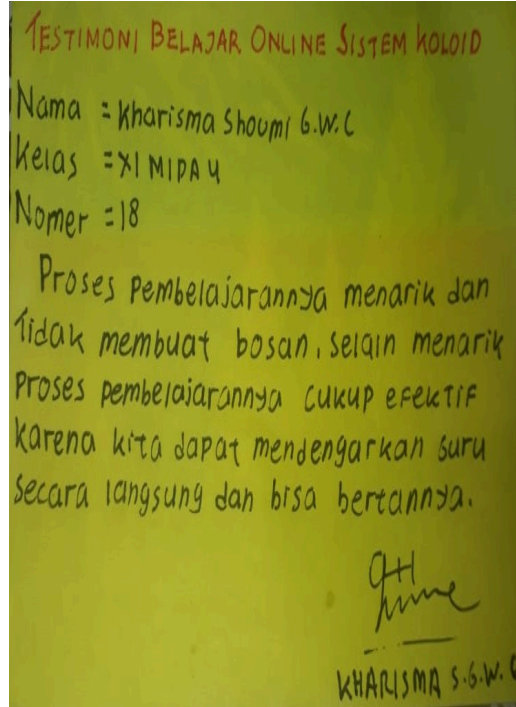 TESTIMONI BELAJAR ONLINE SISTEM KOLOID
Nama = Kharisma Shoumi G.W.C
Kelas = XI MIPA 4
Nomer = 18
Proses pembelajarannya menarik dan
Tidak membuat bosan, selain menarik
Proses pembelajarannya cukup efektif
karena kita dapat mendengarkan guru
secara langsung dan bisa bertannya.
KHARISMA S.G.W.C